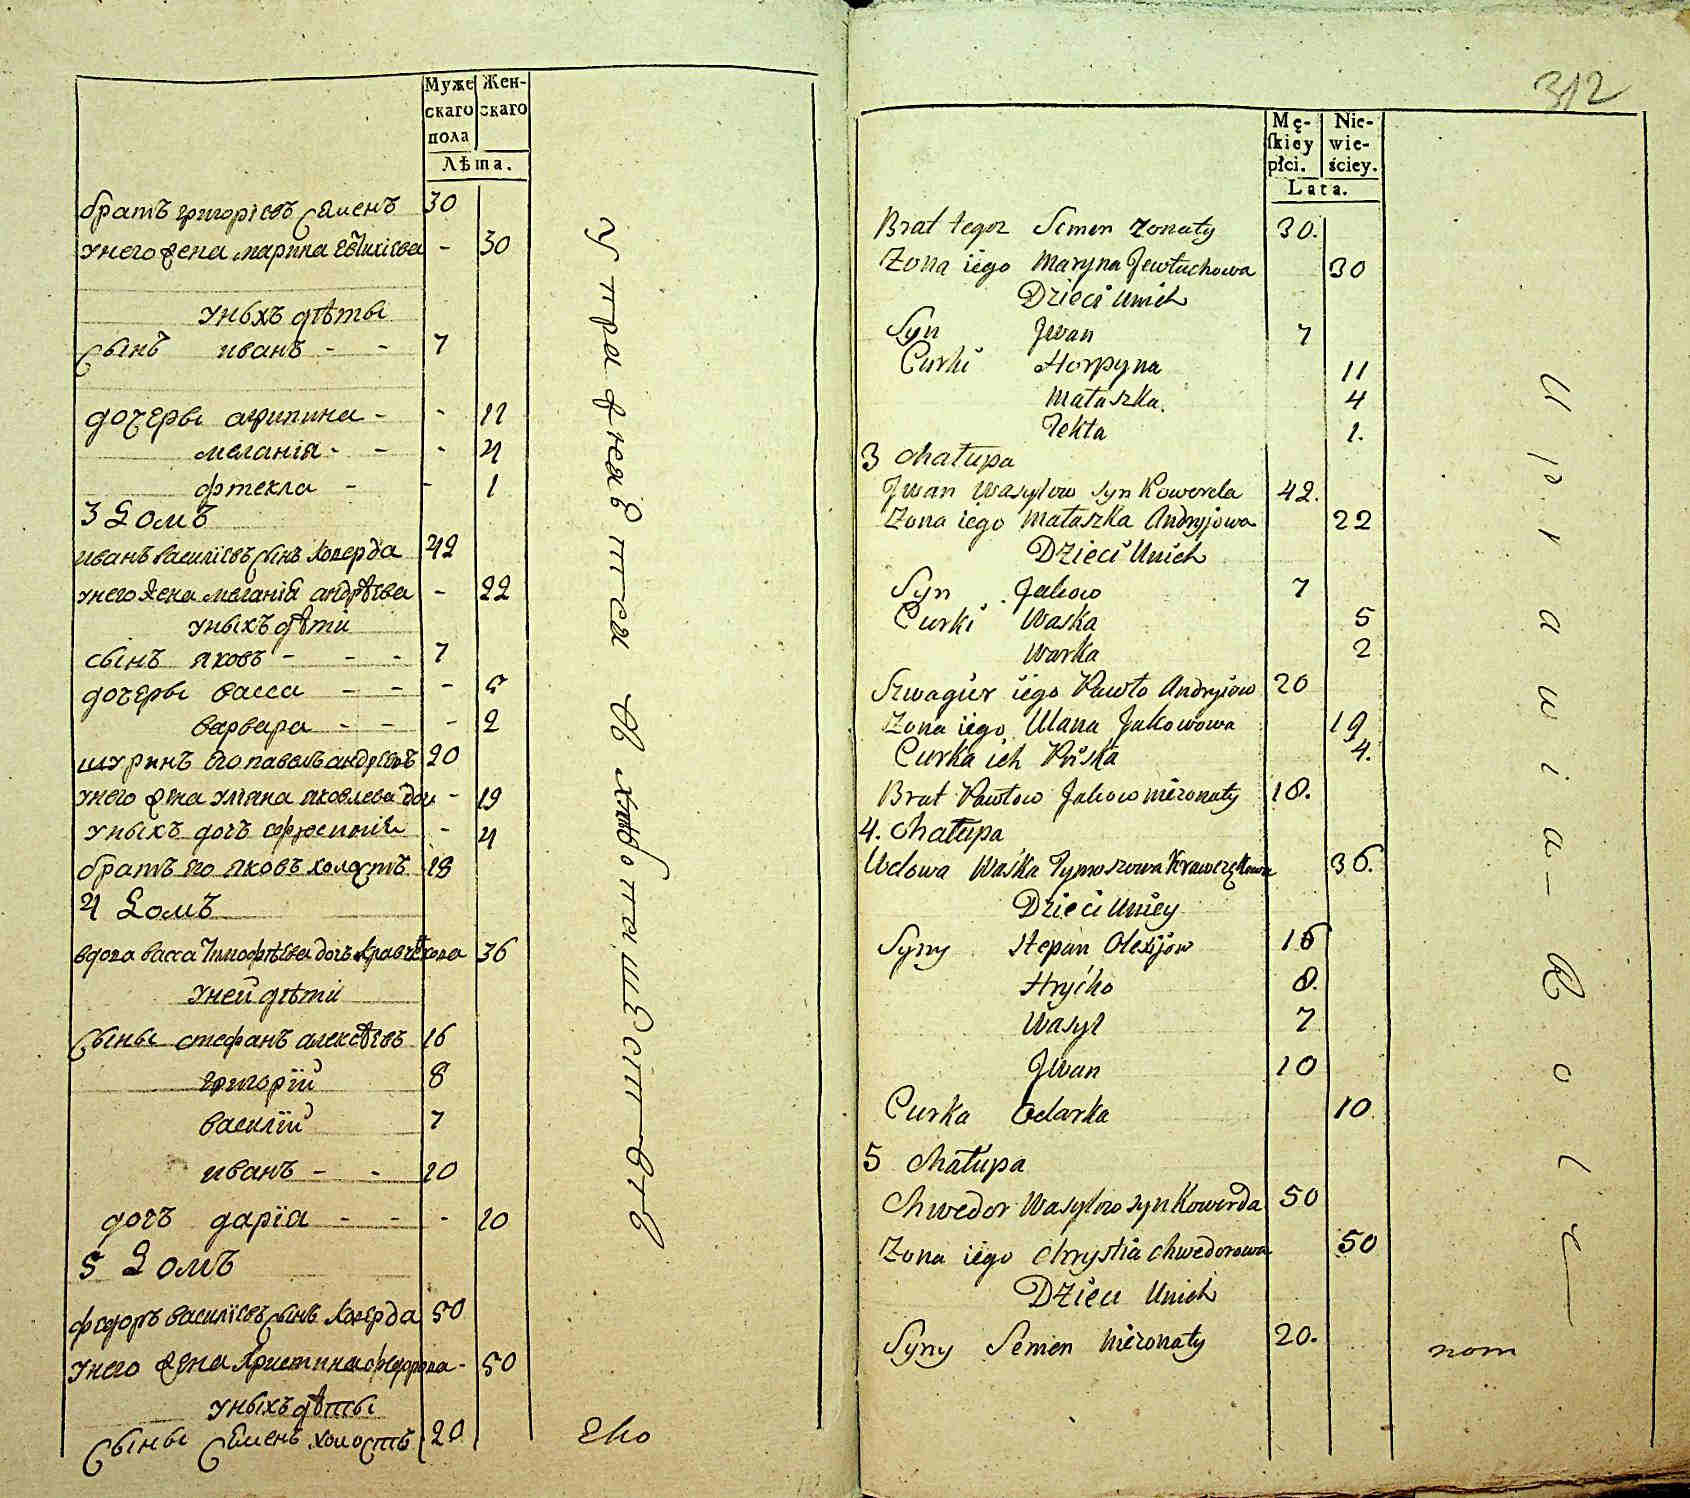 Муже Жен-
скаго скаго
пола
Лѣта.
братъ григоріевъ Семенъ 30
унего жена марина Евтихіева - 30
уныхъ дѣты
Сынъ иванъ - - 7
дочеры агрипина - - 11
меланія - - - 4
фтекла - - 1
3 Домъ
иванъ василіевъ Сынъ Коверда 42
унего жена меланія андрѣева - 22
уныхъ дѣти
сынъ яковъ - - - 7
дочеры васса - - - 5
варвара - - - 2
шуринъ Его павелъ андрѣевъ 20
унего жена уліяна яковлева доч - 19
уныхъ дочъ - 4
братъ Его яковъ холостъ 18
4 Домъ
вдова васса Тимофѣева дочъ Кравчѣкова 36
уней дѣти
Сыны стефанъ алексѣевъ 16
григорій 8
василій 7
иванъ - - 10
дочъ дарія - - - 10
5 Домъ
федоръ василіевъ Сынъ Коверда 50
унего жена Христина федорова - 50
уныхъ дѣты
Сыны Семенъ холостъ 20
Еко
312
Mę- Nie-
skiey wie-
płci. ściey.
Lata.
Brat tegoz Semen zonaty 30.
Zona iego Maryna Jewtuchowa 30
Dzieci Unich
Syn Jwan 7
Curki Horpyna 11
Małaszka. 4
Tekta 1.
3 Chałupa
Jwan Wasylow syn Kowerda 42.
Zona iego Małaszka Andryjowa 22
Dzieci Unich
Syn Jakow 7
Curki Waska 5
Warka 2
Szwagier iego Pawło Andryiow 20
Zona iego Ulana Jakowowa 19
Curka ich Pryska 4.
Brat Pawłow Jakow niezonaty 18.
4. Chałupa
Wdowa Waśka Tymoszowa Krawczukowa 36.
Dzieci Uniey
Syny Stepan Olexijow 16
Hryćko 8.
Wasyl 7
Jwan 10
Curka Odarka 10
5 Chałupa
Chwedor Wasylow syn Kowerda 50
Zona iego Chrystia Chwedorowa 50
Dzieci Unich
Syny Semen niezonaty 20.
U p r a w i a - R o l ę
nom